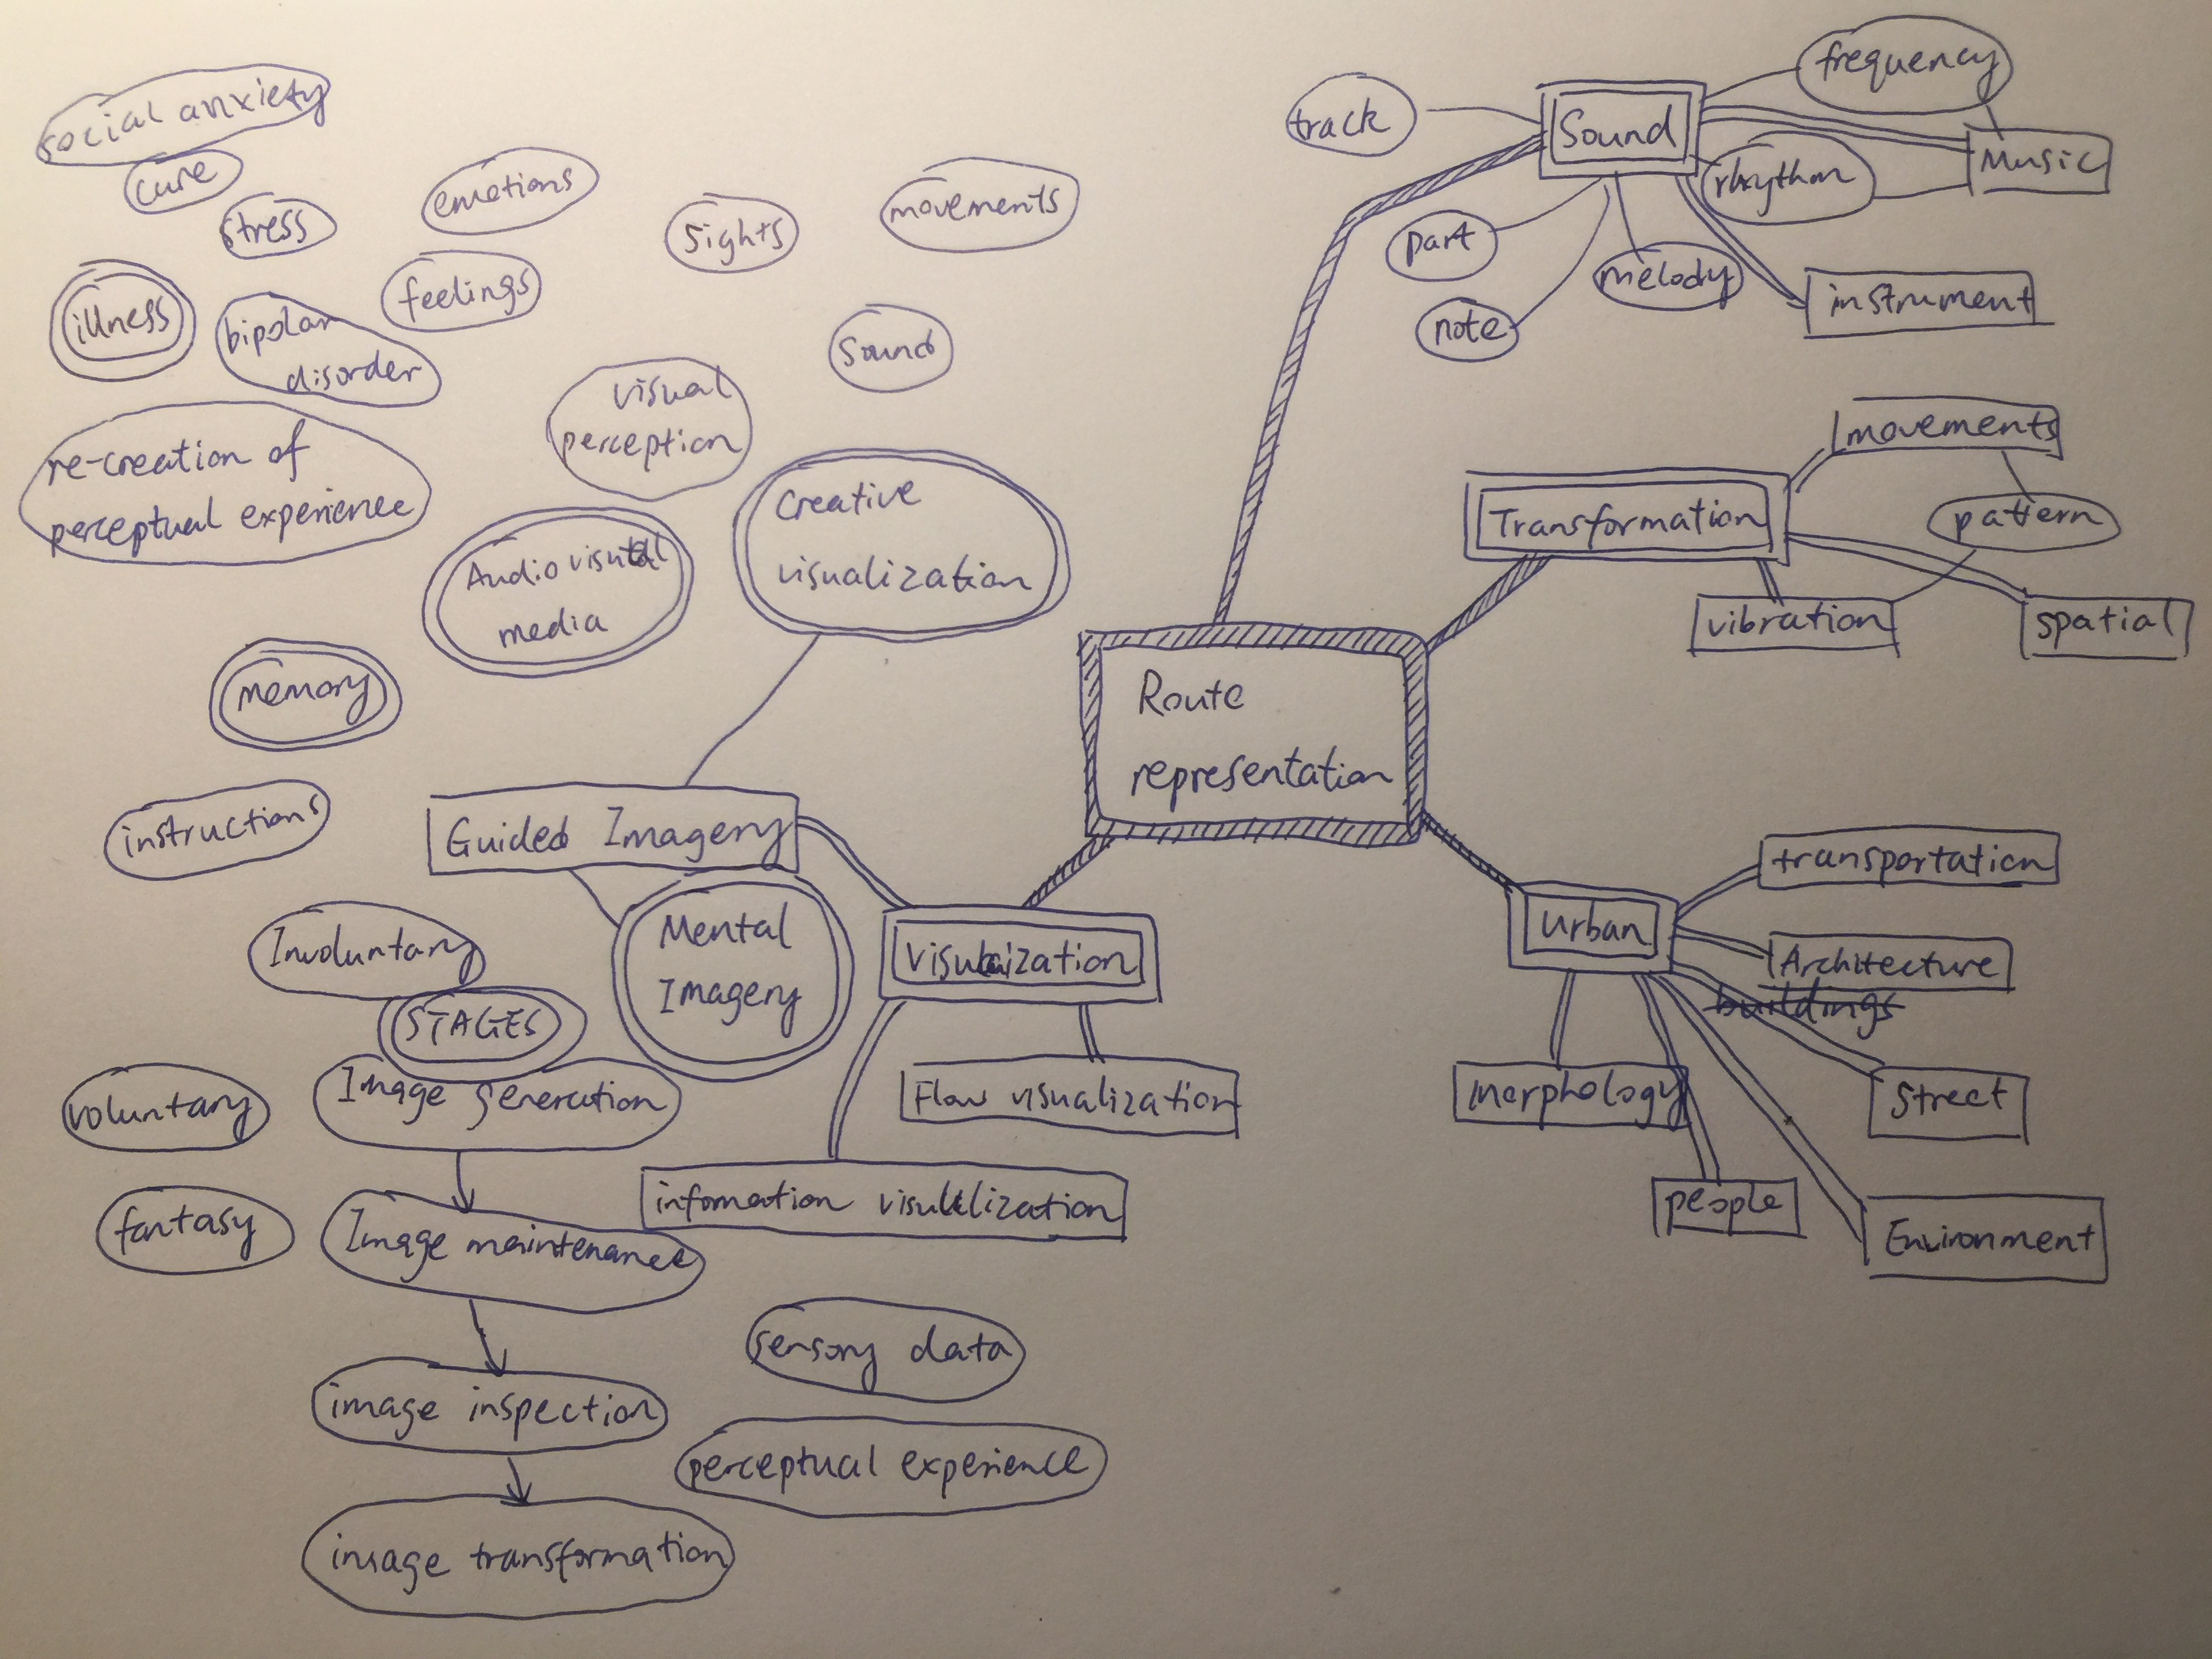 social anxiety
cure
stress
emotions
sights
movements
illness
bipolar
disorder
feelings
sound
visual
perception
re-creation of
perceptual experience
Audio visual
media
Creative
visualization
memory
instructions
Guided Imagery
Mental
Imagery
Involuntary
STAGES
Image generation
voluntary
fantasy
Image maintenance
image inspection
image transformation
sensory data
perceptual experience
Route
representation
visualization
Flow visualization
infomation visualization
track
Sound
frequency
Music
rhythm
part
note
melody
instrument
Transformation
movements
pattern
vibration
spatial
urban
transportation
Architecture
buildings
Street
morphology
people
Environment